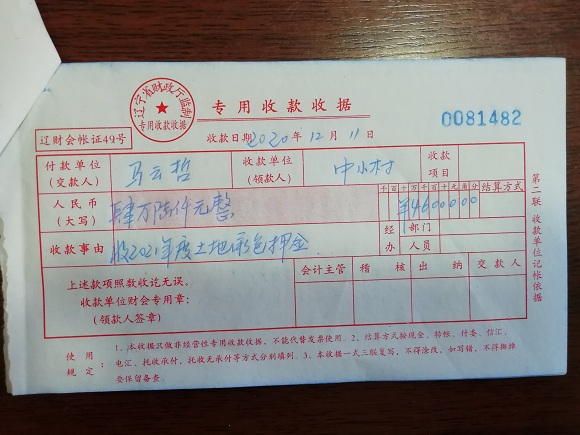 辽宁省财政厅监制
专用收款收据
专用收款收据
0081482
辽财会帐证49号
收款日期2020年12月11日
付款单位
(交款人)
马云哲
收款单位
(领款人)
中小村
收款
项目
人民币
(大写)
肆万陆仟元整
千百十万千百十元角分
结算方式
¥4600000
收款事由
收2021年度土地承包押金
经办
部门
人员
上述款项照数收讫无误。
收款单位财会专用章:
(领款人签章)
会计主管
稽核
出纳
交款人
第二联 收款单位记帐依据
使用规定:
1、本收据只做非经营性专用收款收据,不能代替发票使用。2、结算方式按现金、转帐、付委、信汇、
电汇、托收承付,托收无承付等方式分别填列。3、本收据一式三联复写,不得涂改,如写错,不得撕掉
登保留备查。